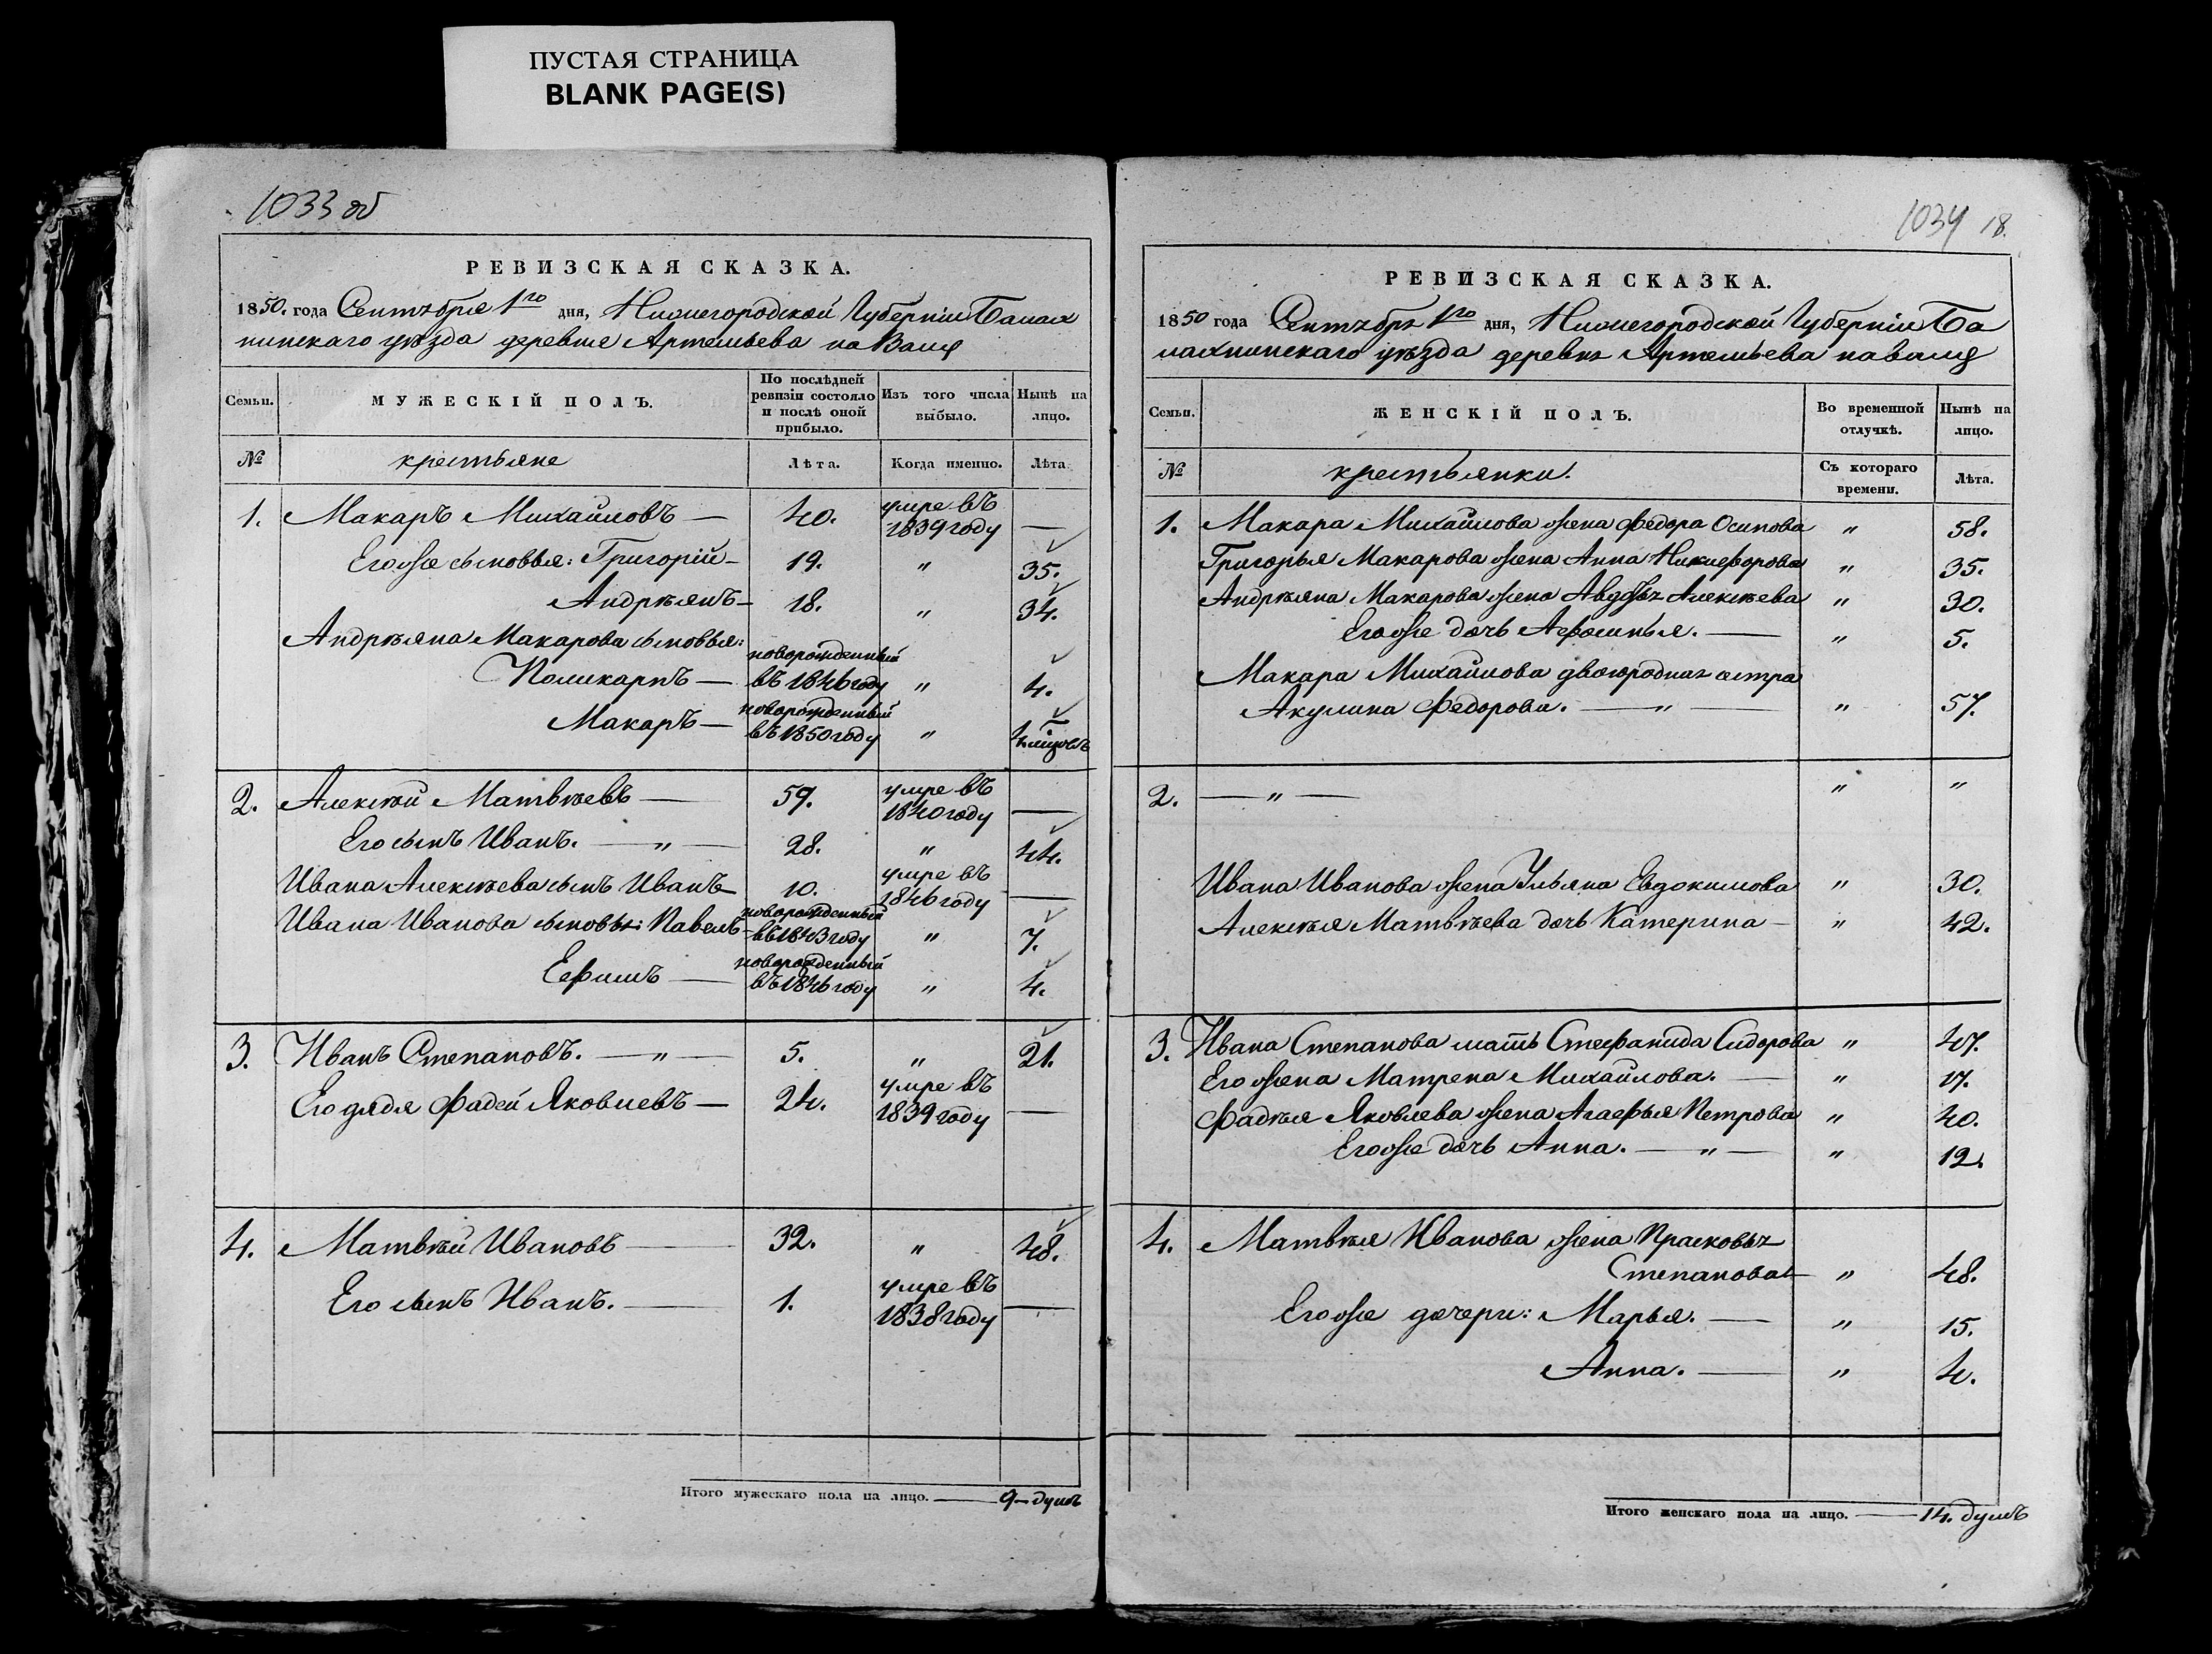 ПУСТАЯ СТРАНИЦА
BLANK PAGE(S)
1033 об
РЕВИЗСКАЯ СКАЗКА.
1850. года Сентября 1го дня, Нижегородской Губерніи Балах
нинскаго уѣзда деревне Артемьева на Валу
Семьи. МУЖЕСКІЙ ПОЛЪ. По послѣдней ревизіи состояло и послѣ оной прибыло. Изъ того числа выбыло. Нынѣ на лицо.
№ крестьяне Лѣта. Когда именно. Лѣта.
1. Макаръ Михайловъ — 40. умре въ 1839 году —
Егоже сыновья: Григорій — 19. " 35.
Андрѣянъ — 18. " 34.
Андрѣяна Макарова сыновья:
Поликарпъ — новорожденный въ 1846 году " 4.
Макаръ — новорожденный въ 1850 году "
2. Алексѣй Матвѣевъ — 59. умре въ 1840 году —
Его сынъ Иванъ. — " — 28. " 44.
Ивана Алексѣева сынъ Иванъ — 10. умре въ 1846 году —
Ивана Иванова сыновья: Павелъ — новорожденный въ 1843 году " 7.
Ефимъ — новорожденный въ 1846 году " 4.
3. Иванъ Степановъ. — " — 5. " 21.
Его дядя Фадей Яковлевъ — 24. умре въ 1839 году —
4. Матвѣй Ивановъ — 32. " 48.
Его сынъ Иванъ. — 1. умре въ 1838 году —
Итого мужескаго пола на лицо. — 9 — душъ
1034 18.
РЕВИЗСКАЯ СКАЗКА.
1850 года Сентября 1го дня, Нижегородской Губерніи Ба
лахнинскаго уѣзда деревня Артемьева на валу
Семьи. ЖЕНСКІЙ ПОЛЪ. Во временной отлучкѣ. Нынѣ на лицо.
№ крестьянки. Съ котораго времени. Лѣта.
1. Макара Михайлова жена Федора Осипова " 58.
Григорья Макарова жена Анна Никифорова " 35.
Андрѣяна Макарова жена Авдотья Алексѣева " 30.
Егоже дочь Афосинья. — " 5.
Макара Михайлова двоюродная сестра
Акулина Федорова. — " — " 57.
2. — " — " "
Ивана Иванова жена Ульяна Евдокимова " 30.
Алексѣя Матвѣева дочь Катерина — " 42.
3. Ивана Степанова мать Стефанида Сидорова " 47.
Его жена Матрена Михайлова. — " 17.
Фадѣя Яковлева жена Агафья Петрова " 40.
Егоже дочь Анна. — " — " 12.
4. Матвѣя Иванова жена Прасковья
Степанова — " 48.
Егоже дочери: Марья. — " 15.
Анна. — " 4.
Итого женскаго пола на лицо. — 14. душъ